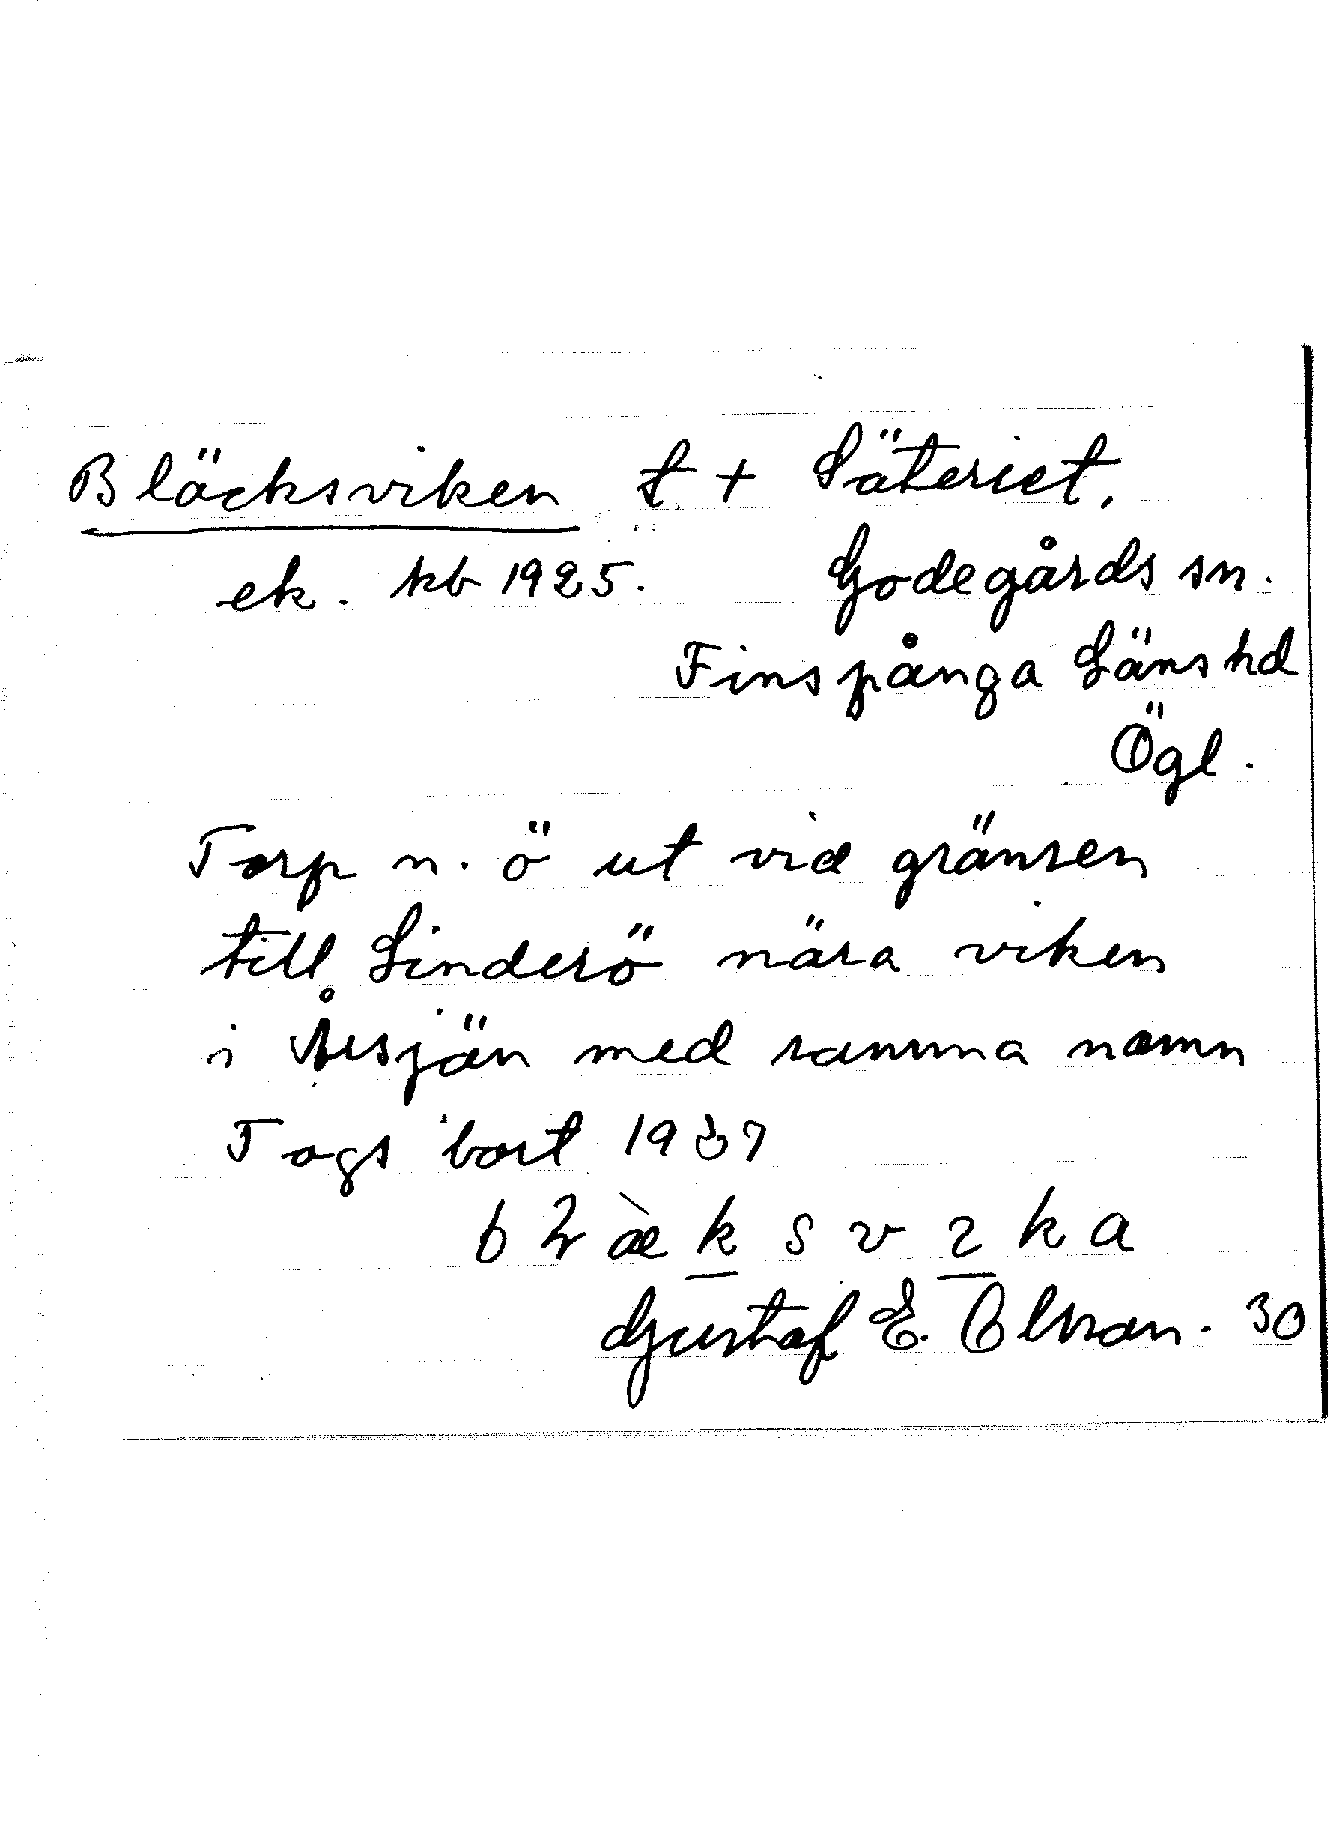 Bläcksviken t + Säteriet,
ek. kb 1925. Godegårds sn.
Finspånga Läns hd
Ögl.
Torp n. ö ut vid gränsen
till Sinderö nära viken
i med samma namn
Togs bort 1937
k s v ɩ k a
Gustaf E. Olsson. 30